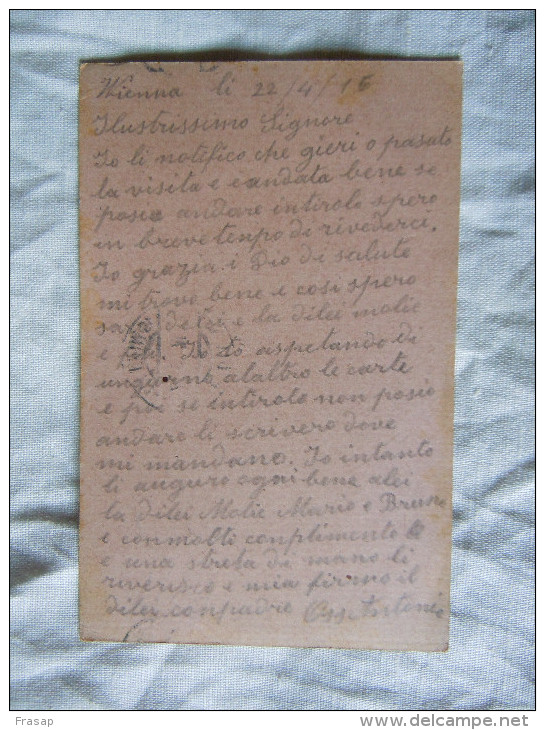 Wienna li 22/4/16
Ilustrissimo Signore
Io li notifico che gieri o pasato
la visita e eandata bene se
posio andare intirolo spero
in breve tenpo di rivederci.
Io grazia i Dio di salute
mi trovo bene e cosi spero
di lei e la dilei molie
e Io sto aspetando di
ungiorno alaltro le carte
e poi se intirolo non posio
andare li scrivero dove
mi mandano. Io intanto
li auguro ogni bene alei
la dilei Molie Mario e Bruno
e conmolti conplimento
e una streta di mano li
riverisco e mia firmo il
dilei conpadre Antonio
Frasap
www.delcampe.net